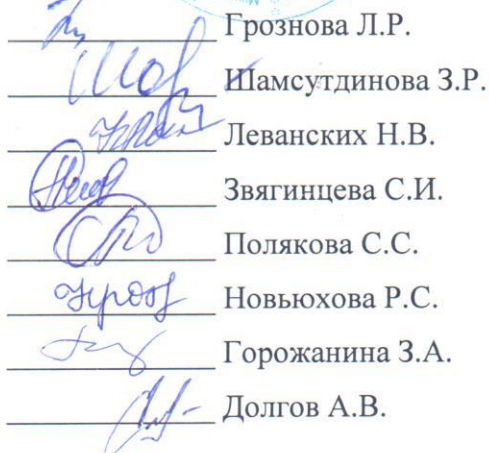 Грознова Л.Р.
Шамсутдинова З.Р.
Леванских Н.В.
Звягинцева С.И.
Полякова С.С.
Новьюхова Р.С.
Горожанина З.А.
Долгов А.В.